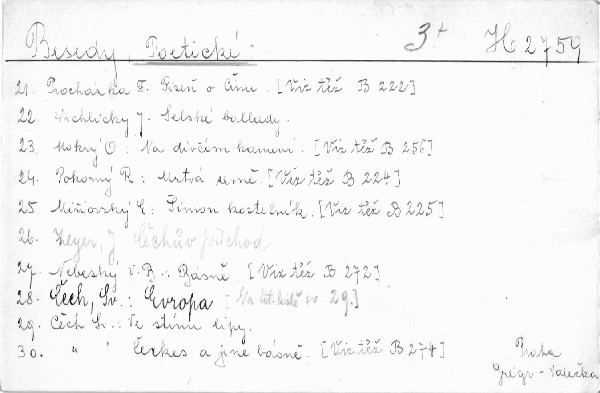 Besedy Poetické. 3+ H 2759
21. Procházka F. Píseň o Činu. [Viz též B 222]
22. Vrchlický J. Selské ballady.
23. Mokrý O: Na dívčím kameni. [Viz též B 256]
24. Pokorný R: Mrtvá země. [Viz též B 224]
25 Miřiovský E: Šimon kostelník. [Viz též B 225]
26. Zeyer, J. Čechův příchod
27. Nebeský V. B.: Básně [Viz též B 272]
28. Čech, Sv.: Evropa [Na tit. listě sv. 29.]
29. Čech Sv.: Ve stínu lípy.
30. " " Čerkes a jiné básně. [Viz též B 274]
Praha
Grégr - Valečka